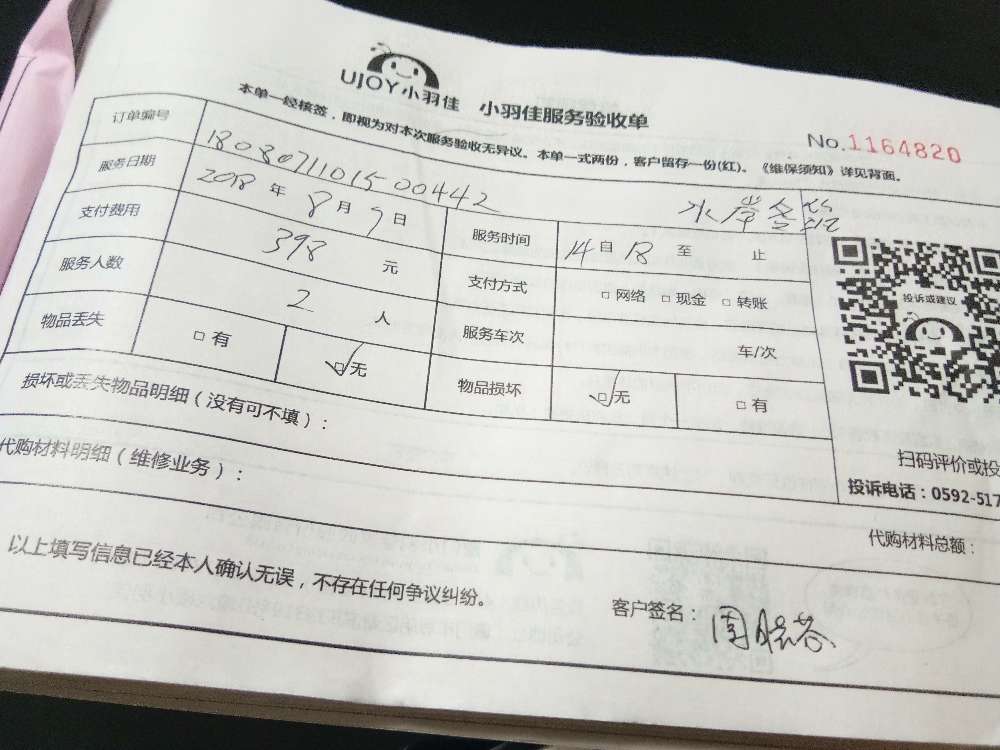 UJOY小羽佳 小羽佳服务验收单
No.1164820
本单一经核签，即视为对本次服务验收无异议。本单一式两份，客户留存一份(红)。《维保须知》详见背面。
订单编号 180807110150 0442 水岸名筑
服务日期 2018 年 8 月 9 日 服务时间 14 自 18 至 止
支付费用 398 元 支付方式 □ 网络 □ 现金 □ 转账
服务人数 2 人 服务车次 车/次
物品丢失 □ 有 ☑无 物品损坏 ☑无 □ 有
投诉或建议
损坏或丢失物品明细（没有可不填）：
扫码评价或投
投诉电话：0592-517
代购材料明细（维修业务）：
代购材料总额：
以上填写信息已经本人确认无误，不存在任何争议纠纷。
客户签名：